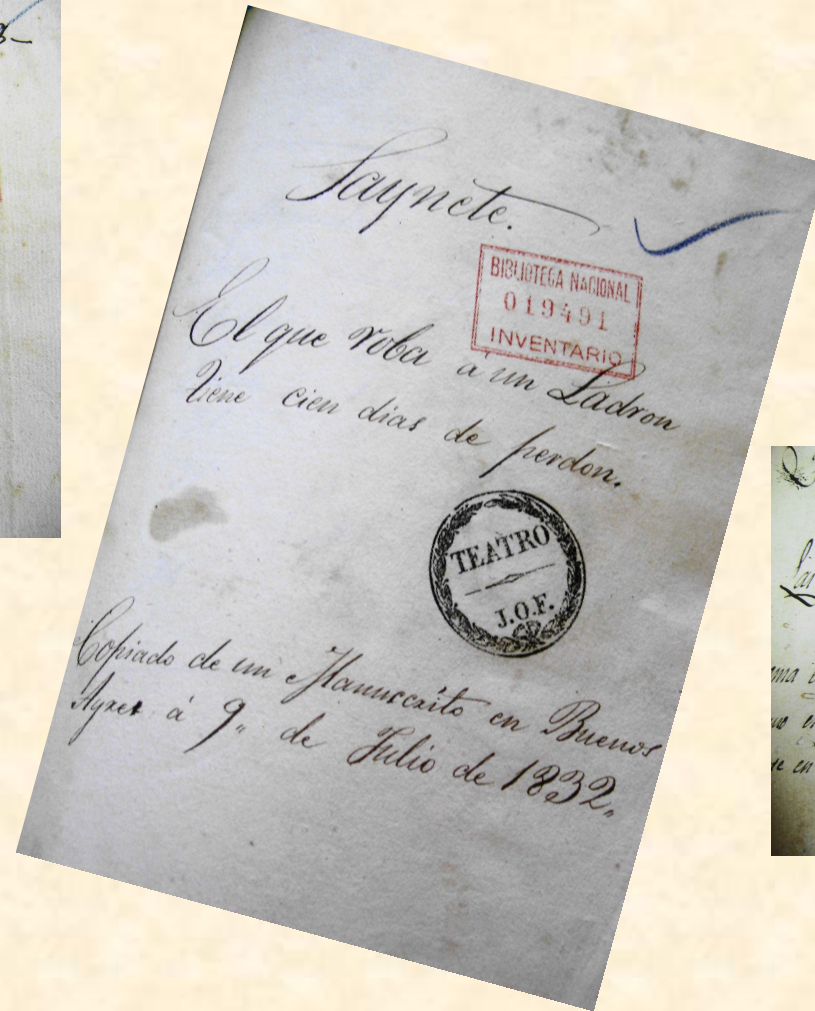 8-
Saynete.
BIBLIOTECA NACIONAL
019491
INVENTARIO
El que roba á un Ladron
tiene cien dias de perdon.
TEATRO
J.O.F.
Copiado de un Manuscrito en Buenos
Ayres á 9,, de Julio de 1832,,